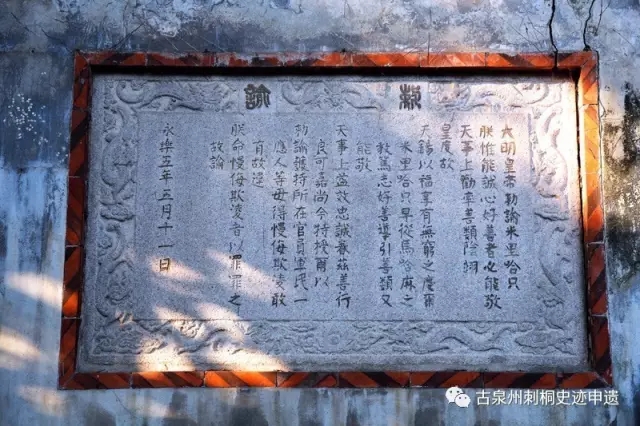 敕諭
大明皇帝勅諭米里哈只
朕惟能誠心好善者必能敬
天事上勸率善類陰翊
皇度故
天錫以福享有無窮之慶爾
米里哈只早從馬哈麻之
教篤志好善導引善類又
能敬
天事上益效忠誠眷茲善行
良可嘉尚今特授爾以
勅諭護持所在官員軍民一
應人等毋得慢侮欺凌敢
有故違
朕命慢侮欺凌者以罪罪之
故諭
永樂五年五月十一日
古泉州刺桐史迹申遗